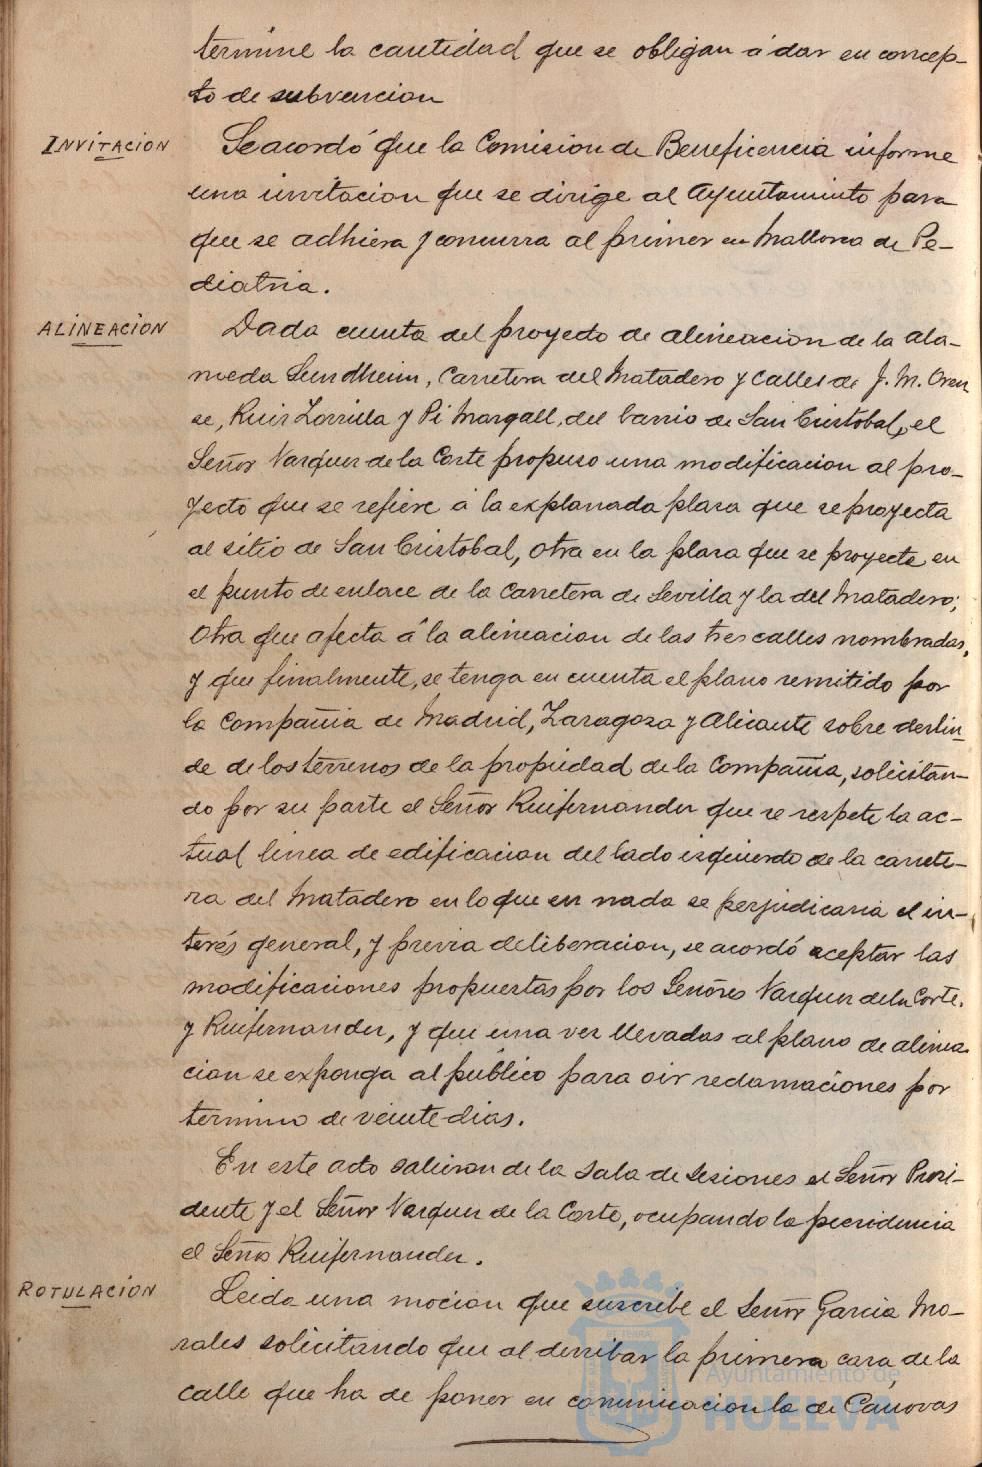 termine la cantidad que se obligan á dar en concep-
to de subvencion
INVITACION
Se acordó que la Comision de Beneficencia informe
una invitacion que se dirige al Ayuntamiento para
que se adhiera y concurra al primer en Mallorca de Pe-
diatria.
ALINEACION
Dada cuenta del proyecto de alineacion de la Ala-
meda Sundheim, Carretera del Matadero y Calles de J. M. Oren
se, Ruiz Zorrilla y Pi Margall, del barrio de San Cristobal, el
Señor Vazquez de la Corte propuso una modificacion al pro-
yecto que se refiere á la explanada plaza que se proyecta
al sitio de San Cristobal, otra en la plaza que se proyecta en
el punto de enlace de la Carretera de Sevilla y la del Matadero;
otra que afecta á la alineacion de las tres calles nombradas,
y que finalmente, se tenga en cuenta el plano remitido por
la Compañia de Madrid, Zaragoza y Alicante sobre deslin-
de de los terrenos de la propiedad de la Compañia, solicitan-
do por su parte el Señor Ruifernandez que se respete la ac-
tual linea de edificacion del lado izquierdo de la carrete-
ra del Matadero en lo que en nada se perjudicaria el in-
terés general, y previa deliberacion, se acordó aceptar las
modificaciones propuestas por los Señores Vazquez de la Corte.
y Ruifernandez, y que una vez llevadas al plano de alinea-
cion se exponga al público para oir reclamaciones por
termino de veinte dias.
En este acto salieron de la sala de sesiones el Señor Presi-
dente y el Señor Vazquez de la Corte, ocupando la presidencia
el Señor Ruifernandez.
ROTULACION
Leida una mocion que suscribe el Señor Garcia Mo-
rales solicitando que al derribar la primera casa de la
calle que ha de poner en comunicacion la de Canovas
Ayuntamiento de
HUELVA